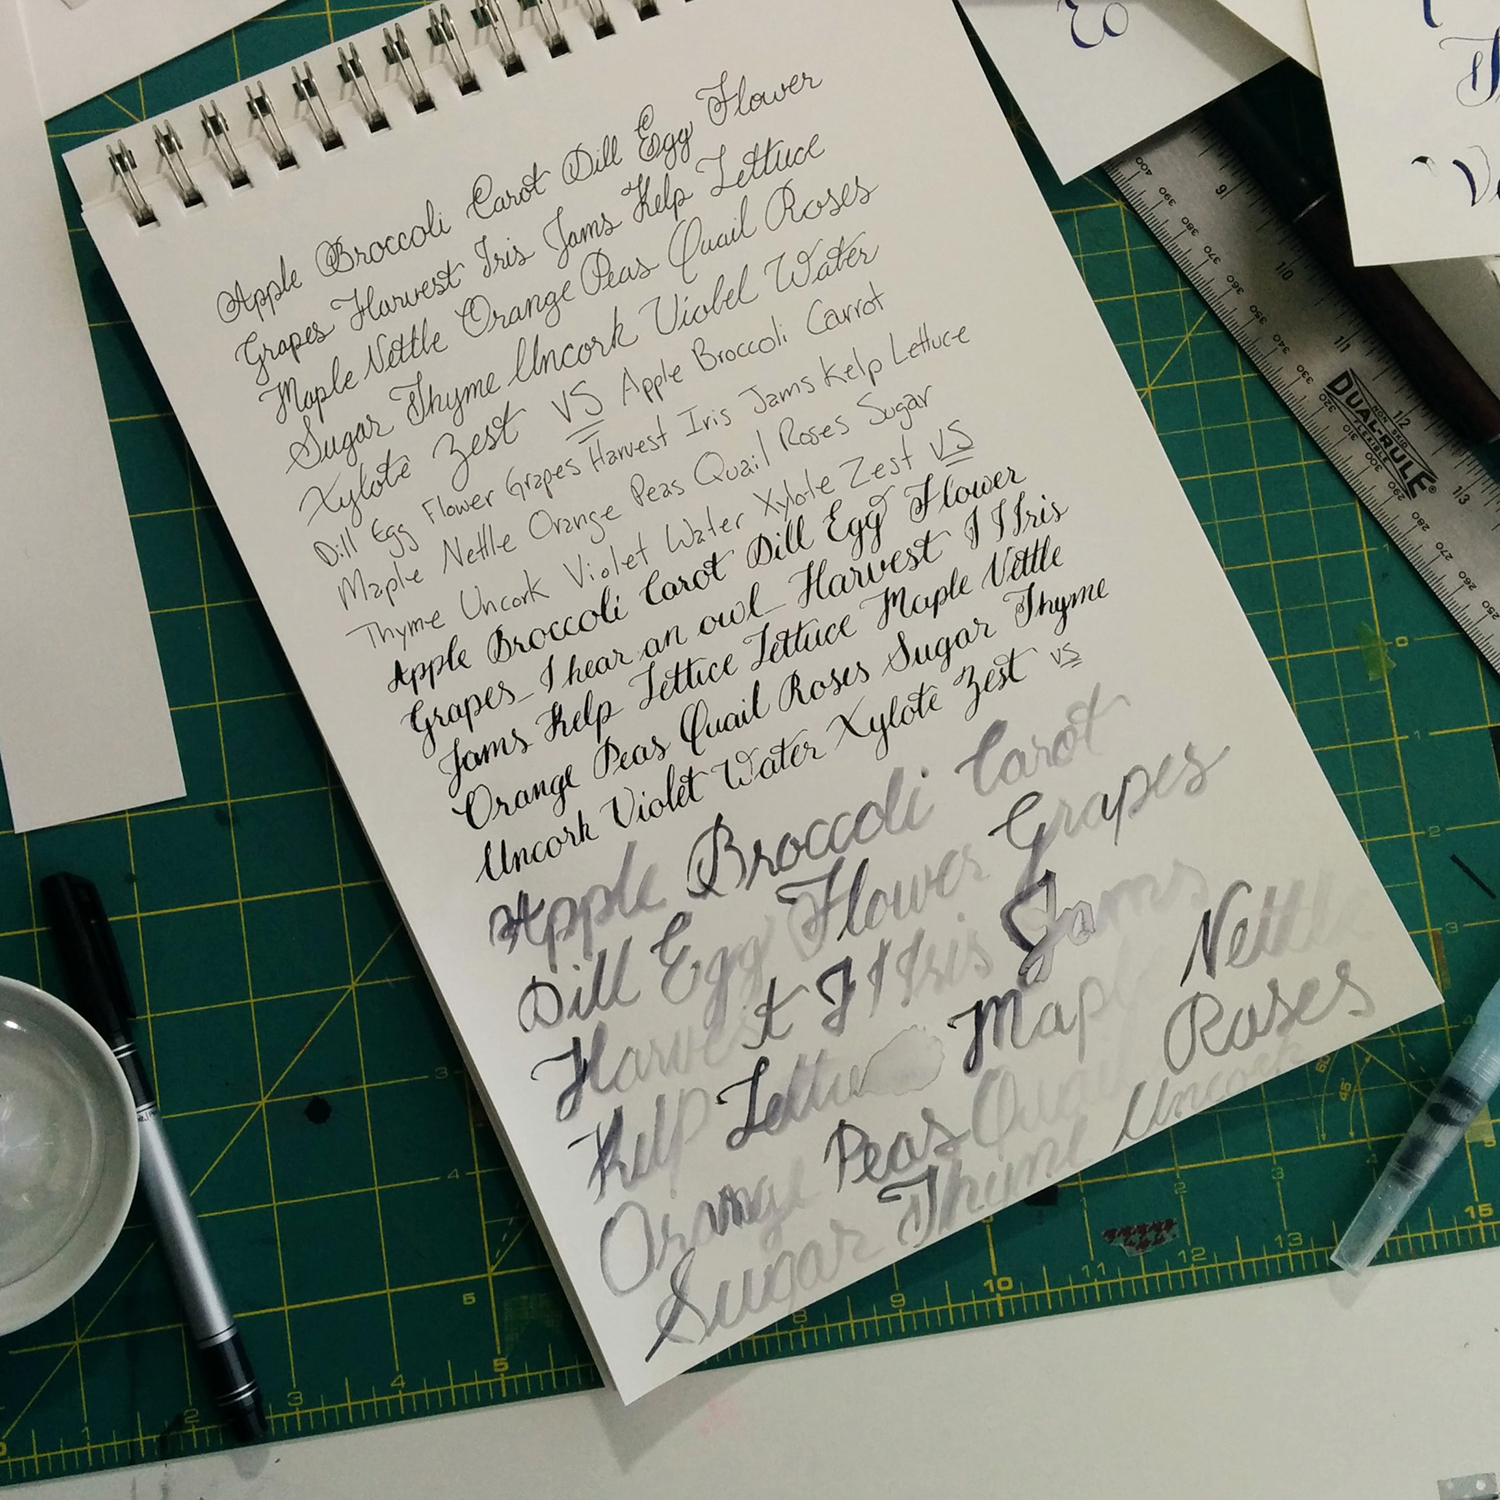 Apple Broccoli Carot Dill Egg Flower
Grapes Harvest Iris Jams Kelp Lettuce
Maple Nettle Orange Peas Quail Roses
Sugar Thyme Uncork Violet Water
Xylote Zest VS Apple Broccoli Carrot
Dill Egg Flower Grapes Harvest Iris Jams Kelp Lettuce
Maple Nettle Orange Peas Quail Roses Sugar
Thyme Uncork Violet Water Xylote Zest VS
Apple Broccoli Carot Dill Egg Flower
Grapes_ I hear an owl_ Harvest I I Iris
Jams Kelp Lettice Lettuce Maple Nettle
Orange Peas Quail Roses Sugar Thyme
Uncork Violet Water Xylote Zest VS
Apple Broccoli Carot
Dill Egg Flower Grapes
Harvest I I Iris Jams
Kelp Lettu Maple Nettle
Orange Peas Quail Roses
Sugar Thyme Uncork
Eo
DUAL-RULE®
NON-SKID
FLEXIBLE
400
390
380
370
360
350
340
330
320
310
300
290
280
270
260
250
9
10
11
12
13
1
2
3
4
5
8
9
10
11
12
13
15
0
1
2
3
3
4
5
1
2
60°
45°